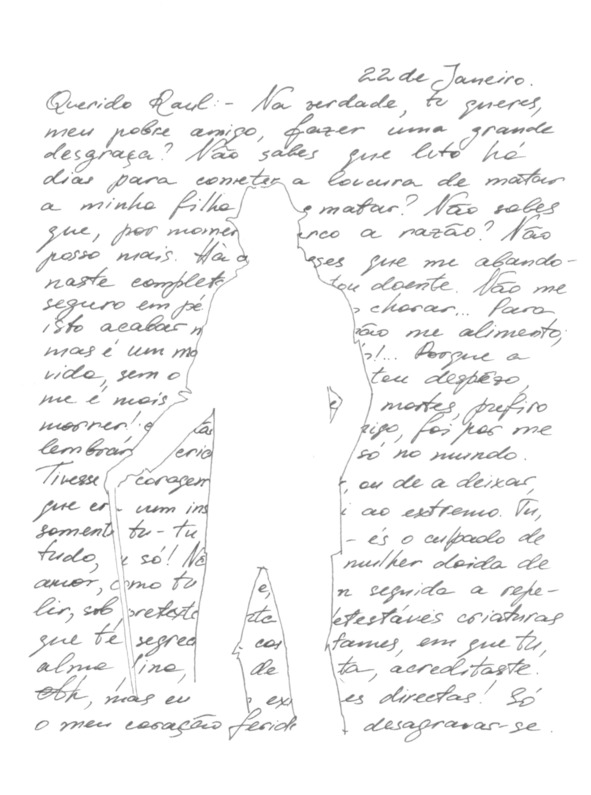 22 de Janeiro.
Querido Raul: - Na verdade, tu queres,
meu pobre amigo, fazer uma grande
desgraça? Não sabes que luto há
dias para cometer a loucura de matar
a minha filha e matar? Não sabes
que, por momen erco a razão? Não
posso mais. Há eses que me abando-
naste complet tou doente. Não me
seguro em pé chorar... Para
isto acabar não me alimento,
mas é um mo s!... Porque a
vida, sem o tou desprezo,
me é mais e mortes, prefiro
morrer! e tas migo, foi por me
lembrar eria só no mundo.
Tivesse coragem, ou de a deixar,
que er um ins i ao extremo. Tu,
soment tu - tu - és o culpado de
tudo, e só! Nã mulher doida de
amor, como tu e, n seguida a repe-
lir, sob pretexto sta etestáveis criaturas
que te segrea cas fames, em que tu,
alma fina, de ta, acreditaste.
Oh, mas eu exi es directas! Só
o meu coração ferid desagravar-se.